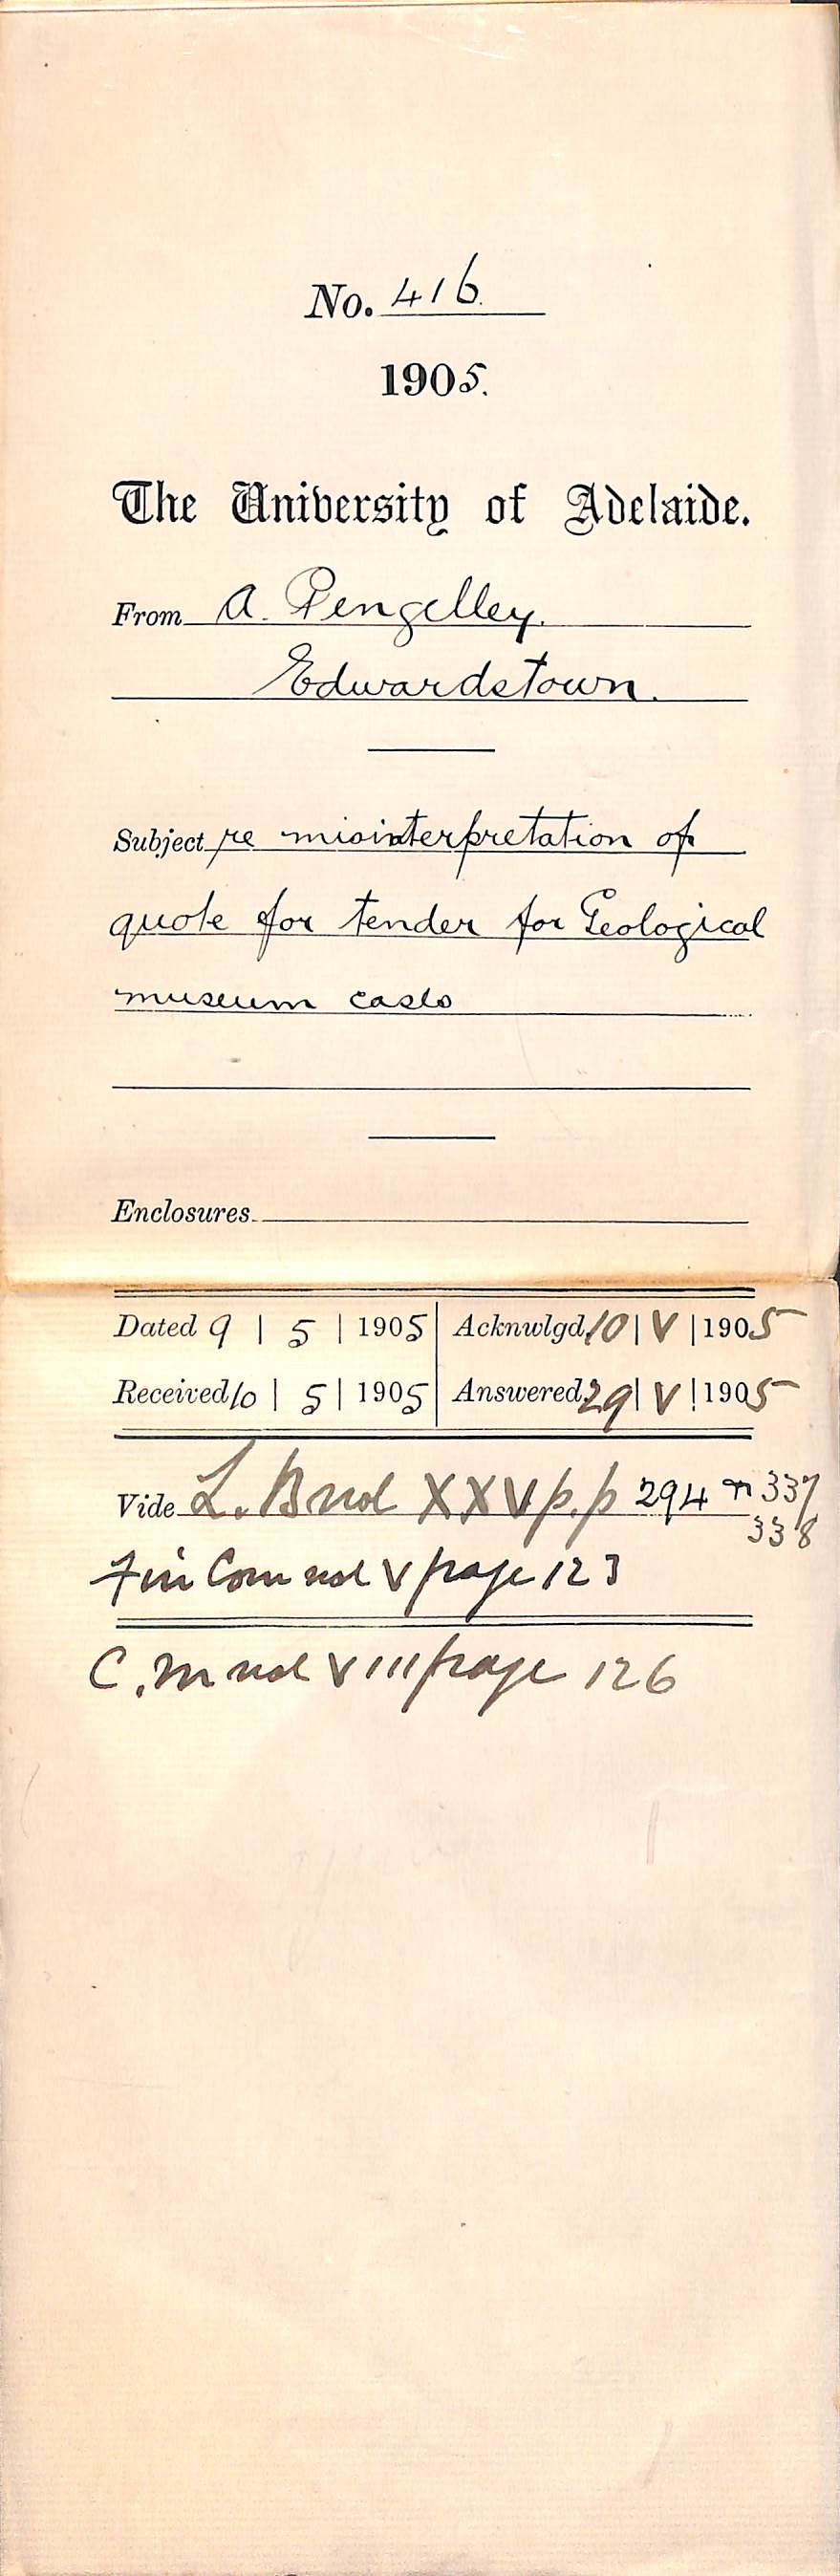 No. 416.
1905.
The University of Adelaide.
From A. Pengelley.
Edwardstown.
Subject re misinterpretation of
quote for tender for Geological
museum cases
Enclosures
Dated 9 | 5 | 1905 Acknwlgd. 10 | V | 1905
Received 10 | 5 | 1905 Answered 29 | V | 1905
Vide L. B vol XXV p.p 294 337
338
Fin Com vol V page 123
C.M vol VIII page 126